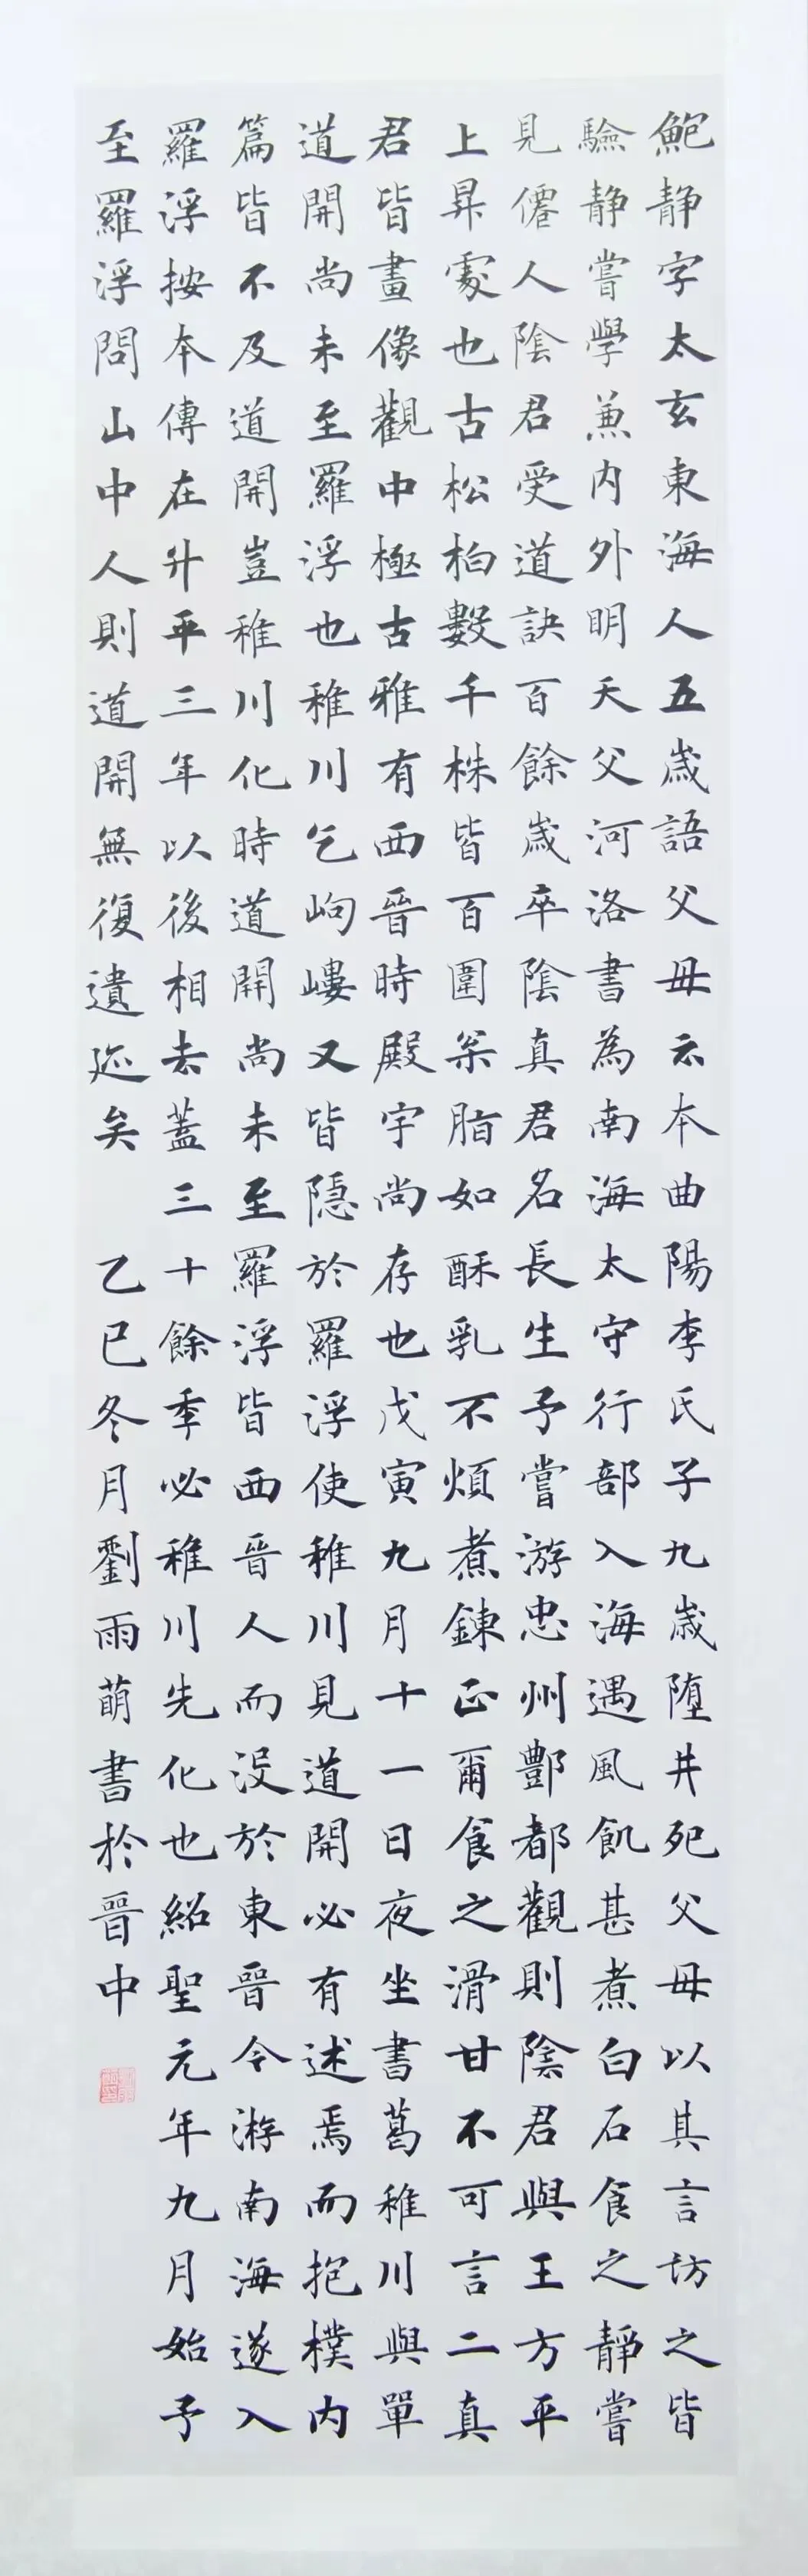 鮑静字太玄東海人五歲語父母云本曲陽李氏子九歲墮井死父母以其言訪之皆
驗静嘗學兼内外明天父河洛書為南海太守行部入海遇風飢甚煮白石食之静嘗
見僊人陰君受道訣百餘歲卒陰真君名長生予嘗游忠州酆都觀則陰君與王方平
上昇處也古松柏數千株皆百圍松脂如酥乳不煩煮鍊正爾食之滑甘不可言二真
君皆畫像觀中極古雅有西晉時殿宇尚存也戊寅九月十一日夜坐書葛稚川與單
道開尚未至羅浮也稚川乞岣嶁又皆隱於羅浮使稚川見道開必有述焉而抱樸内
篇皆不及道開豈稚川化時道開尚未至羅浮皆西晉人而没於東晉今游南海遂入
羅浮按本傳在升平三年以後相去蓋三十餘季必稚川先化也紹聖元年九月始予
至羅浮問山中人則道開無復遺迹矣 乙巳冬月劉雨萌書於晉中